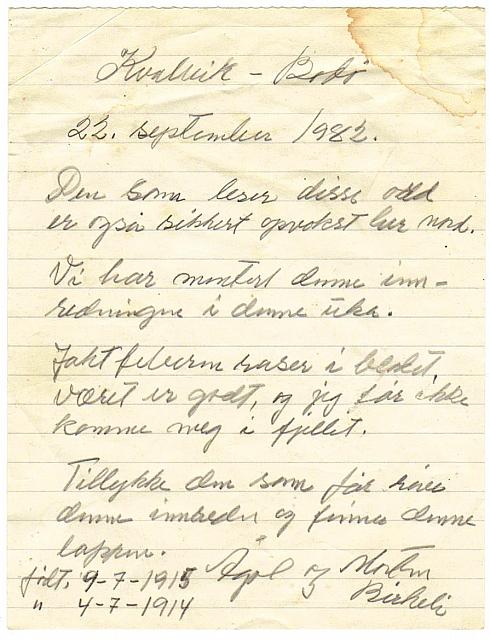 Kvalvik - Bodø
22. september 1982.
Den som leser disse ord
er også sikkert opvokst her nord.
Vi har montert denne inn-
redningne i denne uka.
Jaktfeberen raser i blodet,
været er godt, og jeg får ikke
komme meg i fjellet.
Tillykke den som får rive
denne innreden og finne denne
lappen.
født. 9-7-1915 Ågot og Morten
" 4-7-1914 Birkeli